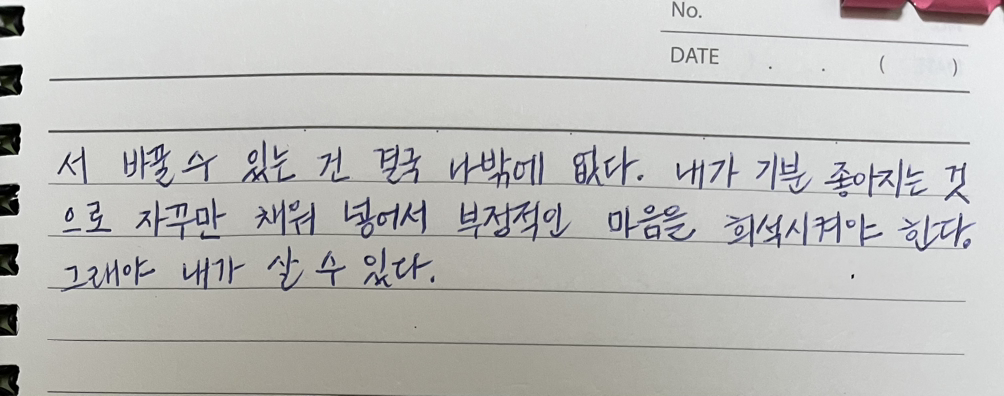 No.
DATE . . ( )
서 바꿀 수 있는 건 결국 나밖에 없다. 내가 기분 좋아지는 것
으로 자꾸만 채워 넣어서 부정적인 마음을 희석시켜야 한다.
그래야 내가 살 수 있다.